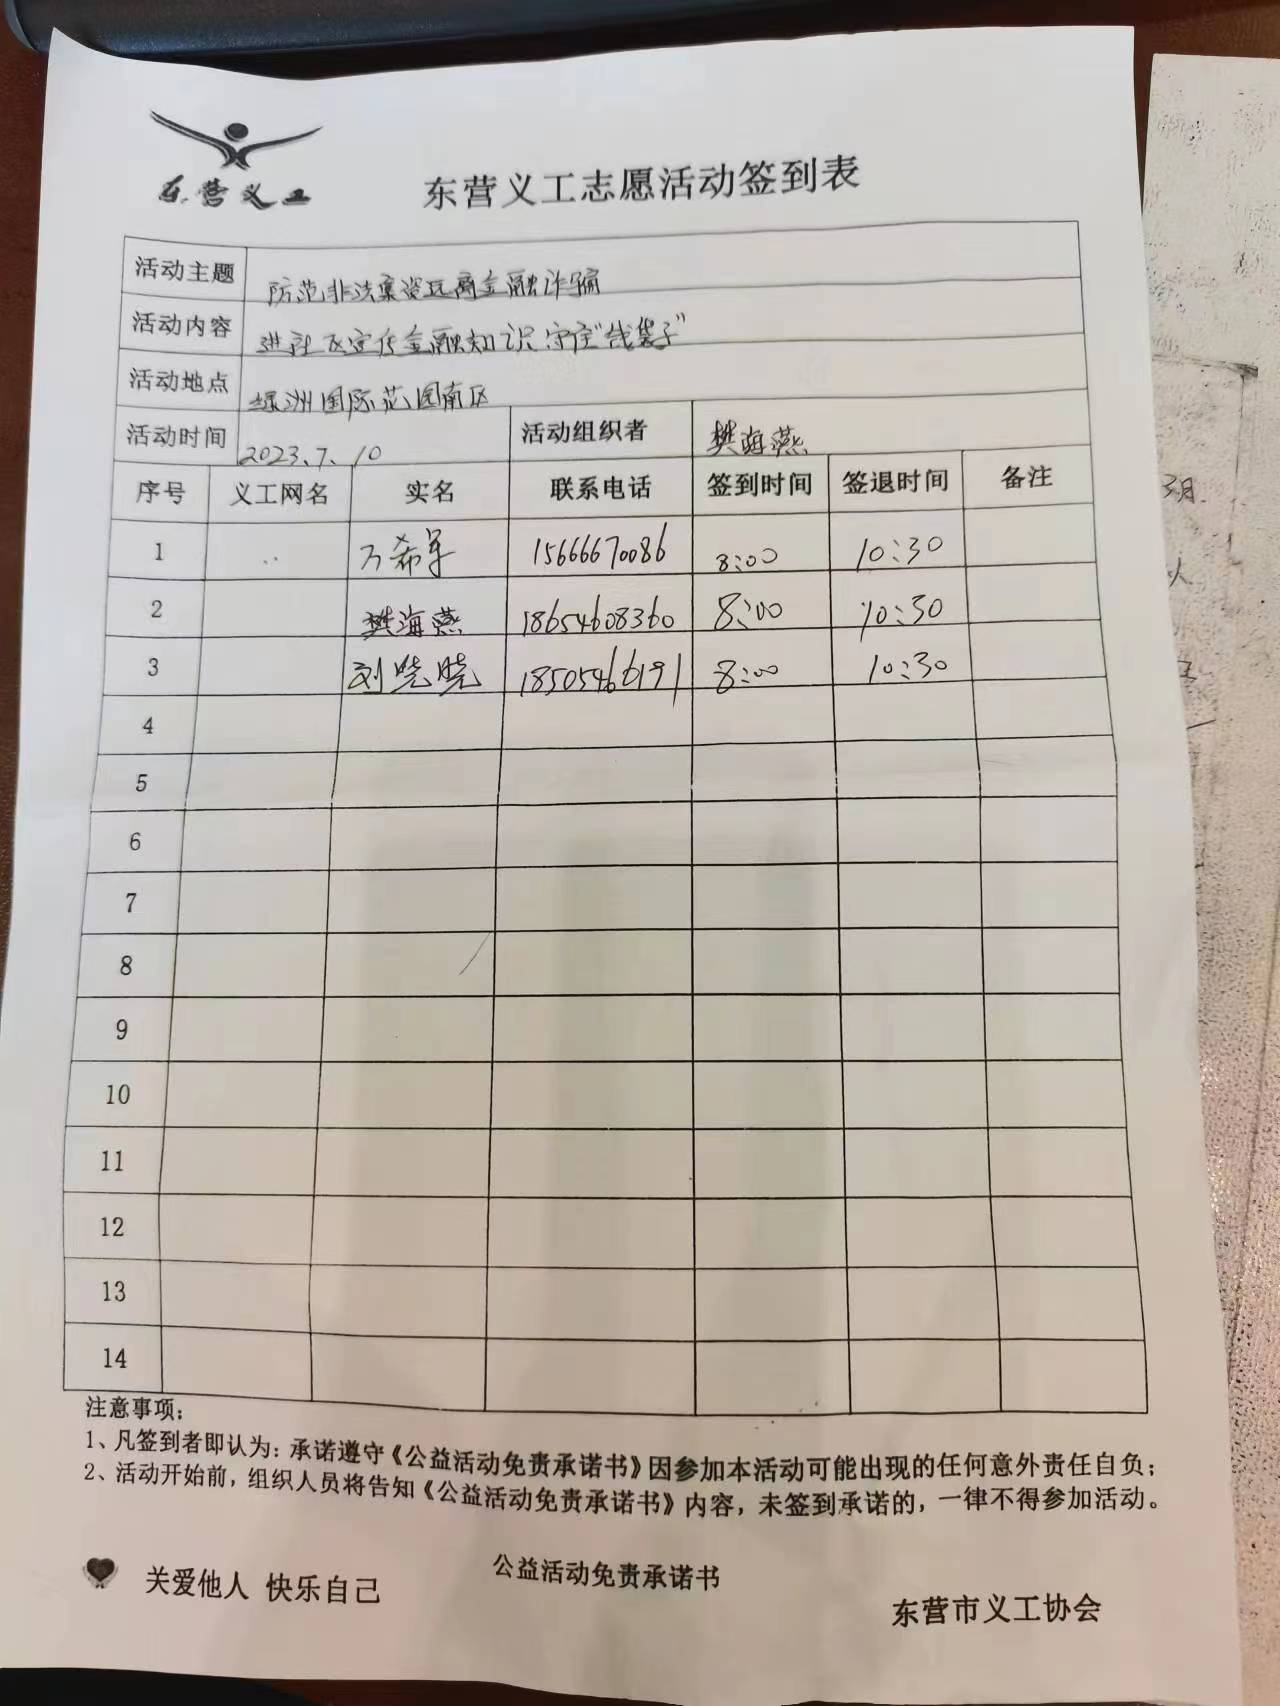 东营义工
东营义工志愿活动签到表
活动主题 防范非法集资远离金融诈骗
活动内容 进社区宣传金融知识 守住“钱袋子”
活动地点 绿洲国际花园南区
活动时间 2023.7.10 活动组织者 樊海燕
序号 义工网名 实名 联系电话 签到时间 签退时间 备注
1 万希军 15666670086 8:00 10:30
2 樊海燕 18654608360 8:00 10:30
3 刘晓晓 18505466191 8:00 10:30
4
5
6
7
8
9
10
11
12
13
14
注意事项:
1、凡签到者即认为:承诺遵守《公益活动免责承诺书》因参加本活动可能出现的任何意外责任自负;
2、活动开始前,组织人员将告知《公益活动免责承诺书》内容,未签到承诺的,一律不得参加活动。
公益活动免责承诺书
关爱他人 快乐自己
东营市义工协会